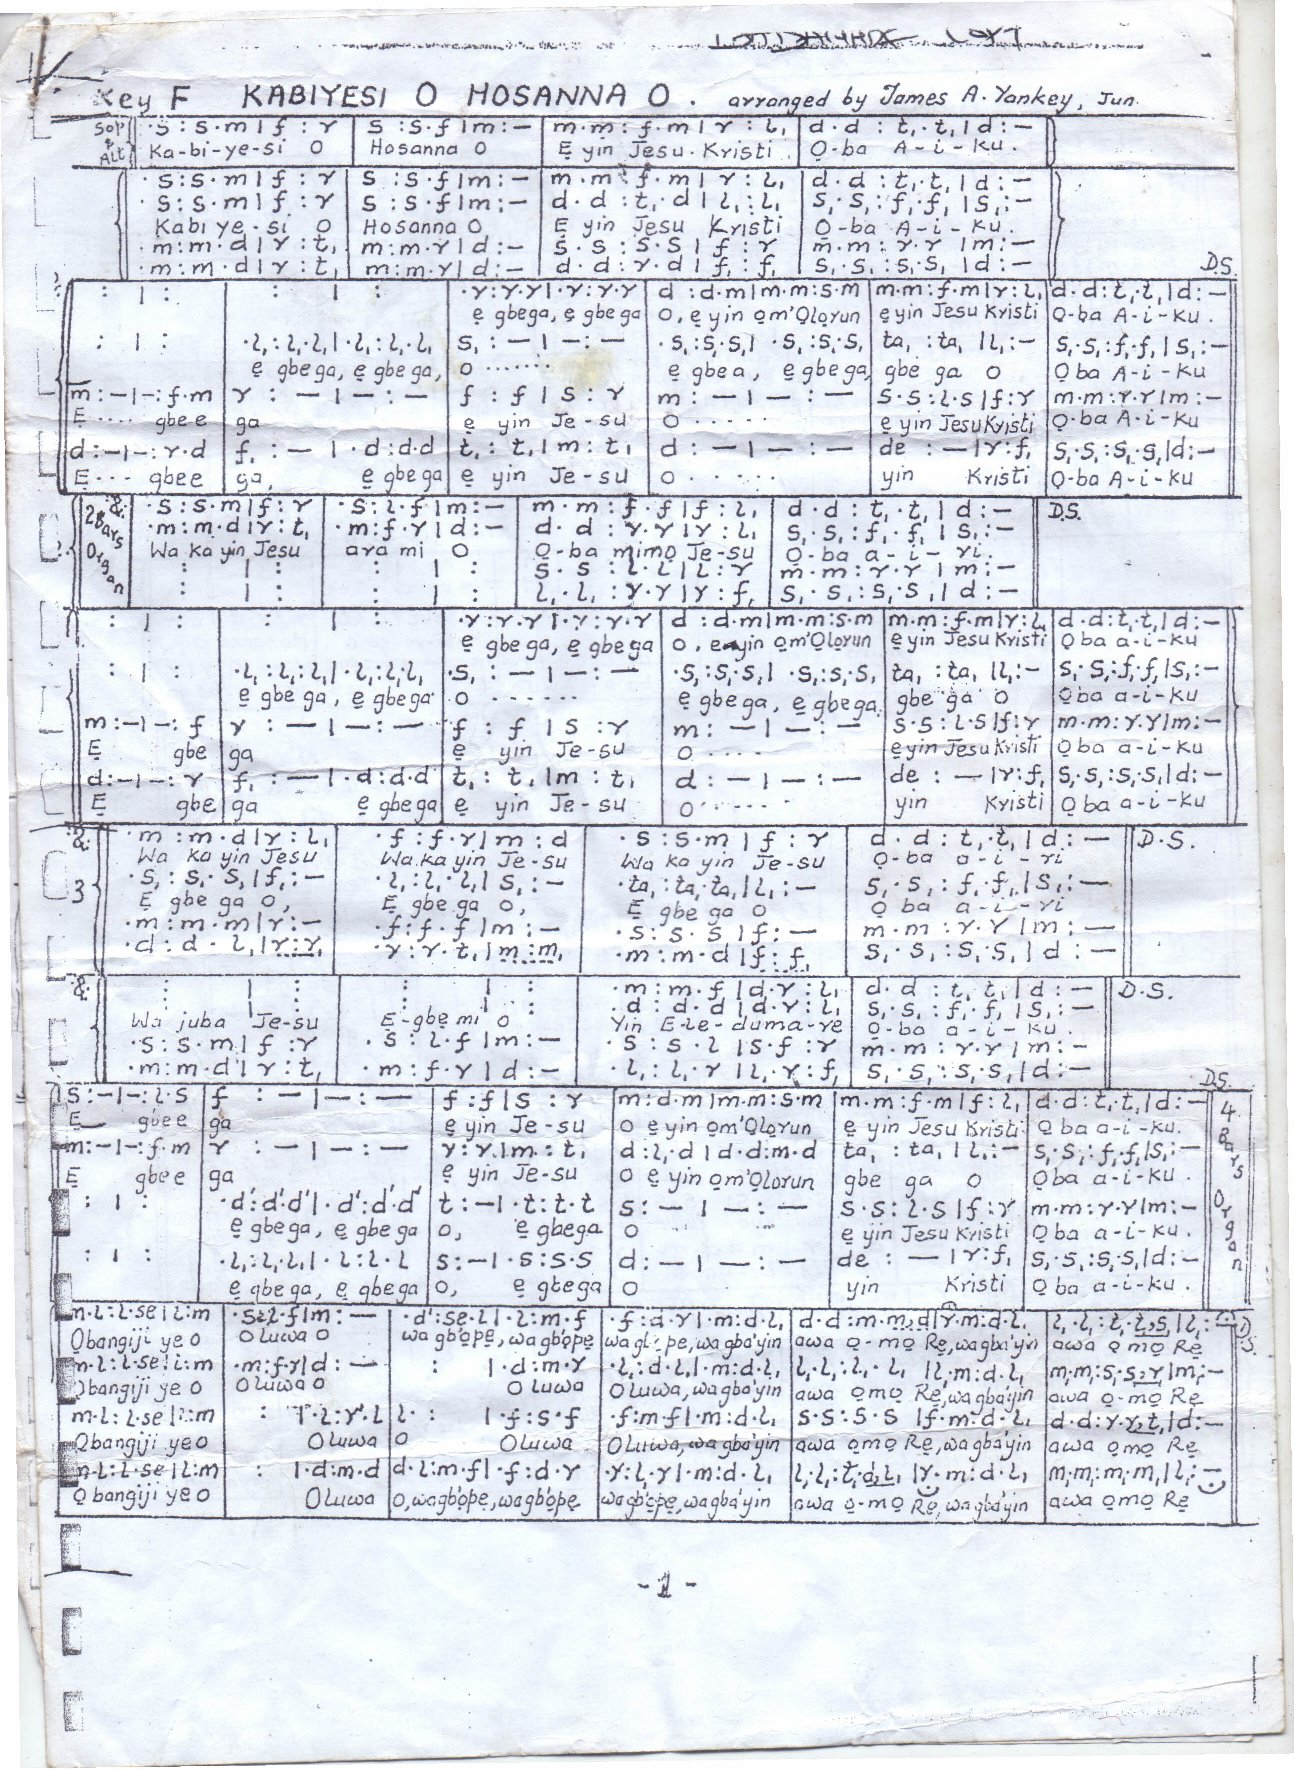 Key F KABIYESI O HOSANNA O. arranged by James A. Yankey, Jun.
Sop & Alt ·s : s·m | f : r | s : s·f | m : — | m·m : f·m | r : l₁ | d·d : t₁·t₁ | d : —
Ka-bi-ye-si O Hosanna O Ẹ yin Jesu Kristi Ọ-ba A-i-ku.
·s : s·m | f : r | s : s·f | m : — | m·m : f·m | r : l₁ | d·d : t₁·t₁ | d : —
·s : s·m | f : r | s : s·f | m : — | d·d : t₁·d | l₁ : l₁ | s₁·s₁ : f₁·f₁ | s₁ : —
Kabiye-si O Hosanna O Ẹ yin Jesu Kristi Ọ-ba A-i-ku.
·m : m·d | r : t₁ | m : m·r | d : — | s·s : s·s | f : r | m·m : r·r | m : —
·m : m·d | r : t₁ | m : m·r | d : — | d·d : r·d | f₁ : f₁ | s₁·s₁ : s₁·s₁ | d : —
D.S.
: | : | : | : | ·r : r·r | ·r : r·r | d : d·m | m·m : s·m | m·m : f·m | r : l₁ | d·d : t₁·t₁ | d : —
ẹ gbega, ẹ gbega O, ẹ yin ọm'Ọlọrun ẹ yin Jesu Kristi Ọ-ba A-i-ku.
: | : | ·l₁ : l₁·l₁ | ·l₁ : l₁·l₁ | s₁ : — | — : — | ·s₁ : s₁·s₁ | ·s₁ : s₁·s₁ | ta₁ : ta₁ | l₁ : — | s₁·s₁ : f₁·f₁ | s₁ : —
ẹ gbega, ẹ gbega, O ...... ẹ gbea, ẹ gbega, gbe ga O Ọba A-i-ku
m : — | — : f·m | r : — | — : — | f : f | s : r | m : — | — : — | s·s : l·s | f : r | m·m : r·r | m : —
Ẹ .... gbee ga ẹ yin Je-su O ..... ẹ yin Jesu Kristi Ọ-ba A-i-ku
d : — | — : r·d | f₁ : — | ·d : d·d | t₁ : t₁ | m : t₁ | d : — | — : — | de : — | r : f₁ | s₁·s₁ : s₁·s₁ | d : —
Ẹ ... gbee ga, ẹ gbega ẹ yin Je-su O ..... yin Kristi Ọ-ba A-i-ku
& 2 Bars Organ ·s : s·m | f : r | ·s : l·f | m : — | m·m : f·f | f : l₁ | d·d : t₁·t₁ | d : — D.S.
·m : m·d | r : t₁ | ·m : f·r | d : — | d·d : r·r | r : l₁ | s₁·s₁ : f₁·f₁ | s₁ : —
Wa ka yin Jesu ara mi O Ọ-ba mimọ Je-su Ọ-ba a-i-ri.
: | : | : | : | s·s : l·l | l : r | m·m : r·r | m : —
: | : | : | : | l₁·l₁ : r·r | r : f₁ | s₁·s₁ : s₁·s₁ | d : —
: | : | : | : | ·r : r·r | ·r : r·r | d : d·m | m·m : s·m | m·m : f·m | r : l₁ | d·d : t₁·t₁ | d : —
ẹ gbega, ẹ gbega O, ẹ yin ọm'Ọlọrun ẹ yin Jesu Kristi Ọba a-i-ku
: | : | ·l₁ : l₁·l₁ | ·l₁ : l₁·l₁ | ·s₁ : — | — : — | ·s₁ : s₁·s₁ | ·s₁ : s₁·s₁ | ta₁ : ta₁ | l₁ : — | s₁·s₁ : f₁·f₁ | s₁ : —
ẹ gbe ga, ẹ gbega O ...... ẹ gbega, ẹ gbega gbe ga O Ọba a-i-ku
m : — | — : f | r : — | — : — | f : f | s : r | m : — | — : — | s·s : l·s | f : r | m·m : r·r | m : —
Ẹ gbe ga ẹ yin Je-su O .... ẹ yin Jesu Kristi Ọba a-i-ku
d : — | — : r | f₁ : — | ·d : d·d | t₁ : t₁ | m : t₁ | d : — | — : — | de : — | r : f₁ | s₁·s₁ : s₁·s₁ | d : —
Ẹ gbe ga ẹ gbega ẹ yin Je-su O ...... yin Kristi Ọba a-i-ku
& 3 ·m : m·d | r : l₁ | ·f : f·r | m : d | ·s : s·m | f : r | d·d : t₁·t₁ | d : — D.S.
Wa ka yin Jesu Wa ka yin Je-su Wa ka yin Je-su Ọ-ba a-i-ri
·s₁ : s₁·s₁ | f₁ : — | ·l₁ : l₁·l₁ | s₁ : — | ·ta₁ : ta₁·ta₁ | l₁ : — | s₁·s₁ : f₁·f₁ | s₁ : —
Ẹ gbe ga O, Ẹ gbe ga O, Ẹ gbe ga O Ọ ba a-i-ri
·m : m·m | r : — | ·f : f·f | m : — | ·s : s·s | f : — | m·m : r·r | m : —
·d : d·l₁ | r : r₁ | ·r : r·t₁ | m : m₁ | ·m : m·d | f : f₁ | s₁·s₁ : s₁·s₁ | d : —
& : | : | : | : | ·m : m·f | d·r : l₁ | d·d : t₁·t₁ | d : — D.S.
: | : | : | : | ·d : d·d | d·r : l₁ | s₁·s₁ : f₁·f₁ | s₁ : —
Wa juba Je-su Ẹ-gbẹ mi O Yin E-le-duma-re Ọ-ba a-i-ku.
·s : s·m | f : r | ·s : l·f | m : — | ·s : s·l | s·f : r | m·m : r·r | m : —
·m : m·d | r : t₁ | ·m : f·r | d : — | ·l₁ : l₁·r | l₁·r : f₁ | s₁·s₁ : s₁·s₁ | d : —
D.S.
s : — | — : l·s | f : — | — : — | f : f | s : r | m : d·m | m·m : s·m | m·m : f·m | f : l₁ | d·d : t₁·t₁ | d : — 4 Bars Organ
Ẹ gbee ga ẹ yin Je-su O ẹ yin ọm'Ọlọrun ẹ yin Jesu Kristi Ọba a-i-ku.
m : — | — : f·m | r : — | — : — | r : r | m : t₁ | d : l₁·d | d·d : m·d | ta₁ : ta₁ | l₁ : — | s₁·s₁ : f₁·f₁ | s₁ : —
Ẹ gbee ga ẹ yin Je-su O ẹ yin ọm'Ọlọrun gbe ga O Ọba a-i-ku.
: | : | ·d' : d'·d' | ·d' : d'·d' | t : — | ·t : t·t | s : — | — : — | s·s : l·s | f : r | m·m : r·r | m : —
ẹ gbega, ẹ gbega O, ẹ gbega O ẹ yin Jesu Kristi Ọba a-i-ku.
: | : | ·l : l·l | ·l : l·l | s : — | ·s : s·s | d : — | — : — | de : — | r : f₁ | s₁·s₁ : s₁·s₁ | d : —
ẹ gbega, ẹ gbega O, ẹ gbega O yin Kristi Ọba a-i-ku.
m·l : l·se | l : m | ·s : l·f | m : — | ·d' : se·l | l : m·f | ·f : d·r | m : d·l₁ | d·d : m·m,d | r·m : d·l₁ | l₁·l₁ : t₁·t₁,s₁ | l₁ : — D.S.
Ọbangiji ye O Oluwa O wa gbọpẹ, wa gbọpẹ wa gbọpẹ, wa gba'yin awa ọ-mọ Rẹ, wa gba'yin awa ọmọ Rẹ
m·l : l·se | l : m | ·m : f·r | d : — | : | ·d : m·r | ·l₁ : d·l₁ | ·m : d·l₁ | l₁·l₁ : l₁·l₁ | l₁·m : d·l₁ | m₁·m₁ : s₁·s₁,r₁ | m₁ : —
Ọbangiji ye O Oluwa O O luwa Oluwa, wa gba'yin awa ọmọ Rẹ, wa gba'yin awa ọ-mọ Rẹ
m·l : l·se | l : m | : | ·l : r'·l | l· : | ·f : s·f | ·f : m·f | ·m : d·l₁ | s·s : s·s | f·m : d·l₁ | d·d : r·r,t₁ | d : —
Ọbangiji ye O Oluwa O Oluwa Oluwa, wa gba'yin awa ọmọ Rẹ, wa gba'yin awa ọmọ Rẹ
m·l : l·se | l : m | : | ·d : m·d | d·l : m·f | ·f : d·r | ·r : l₁·r | ·m : d·l₁ | l₁·l₁ : t₁·d,l₁ | r·m : d·l₁ | m₁·m₁ : m₁·m₁ | l₁ : —
Ọbangiji ye O Oluwa O, wa gbọpẹ, wa gbọpẹ wa gbọpẹ, wa gba'yin awa ọ-mọ Rẹ, wa gba'yin awa ọmọ Rẹ
-1-